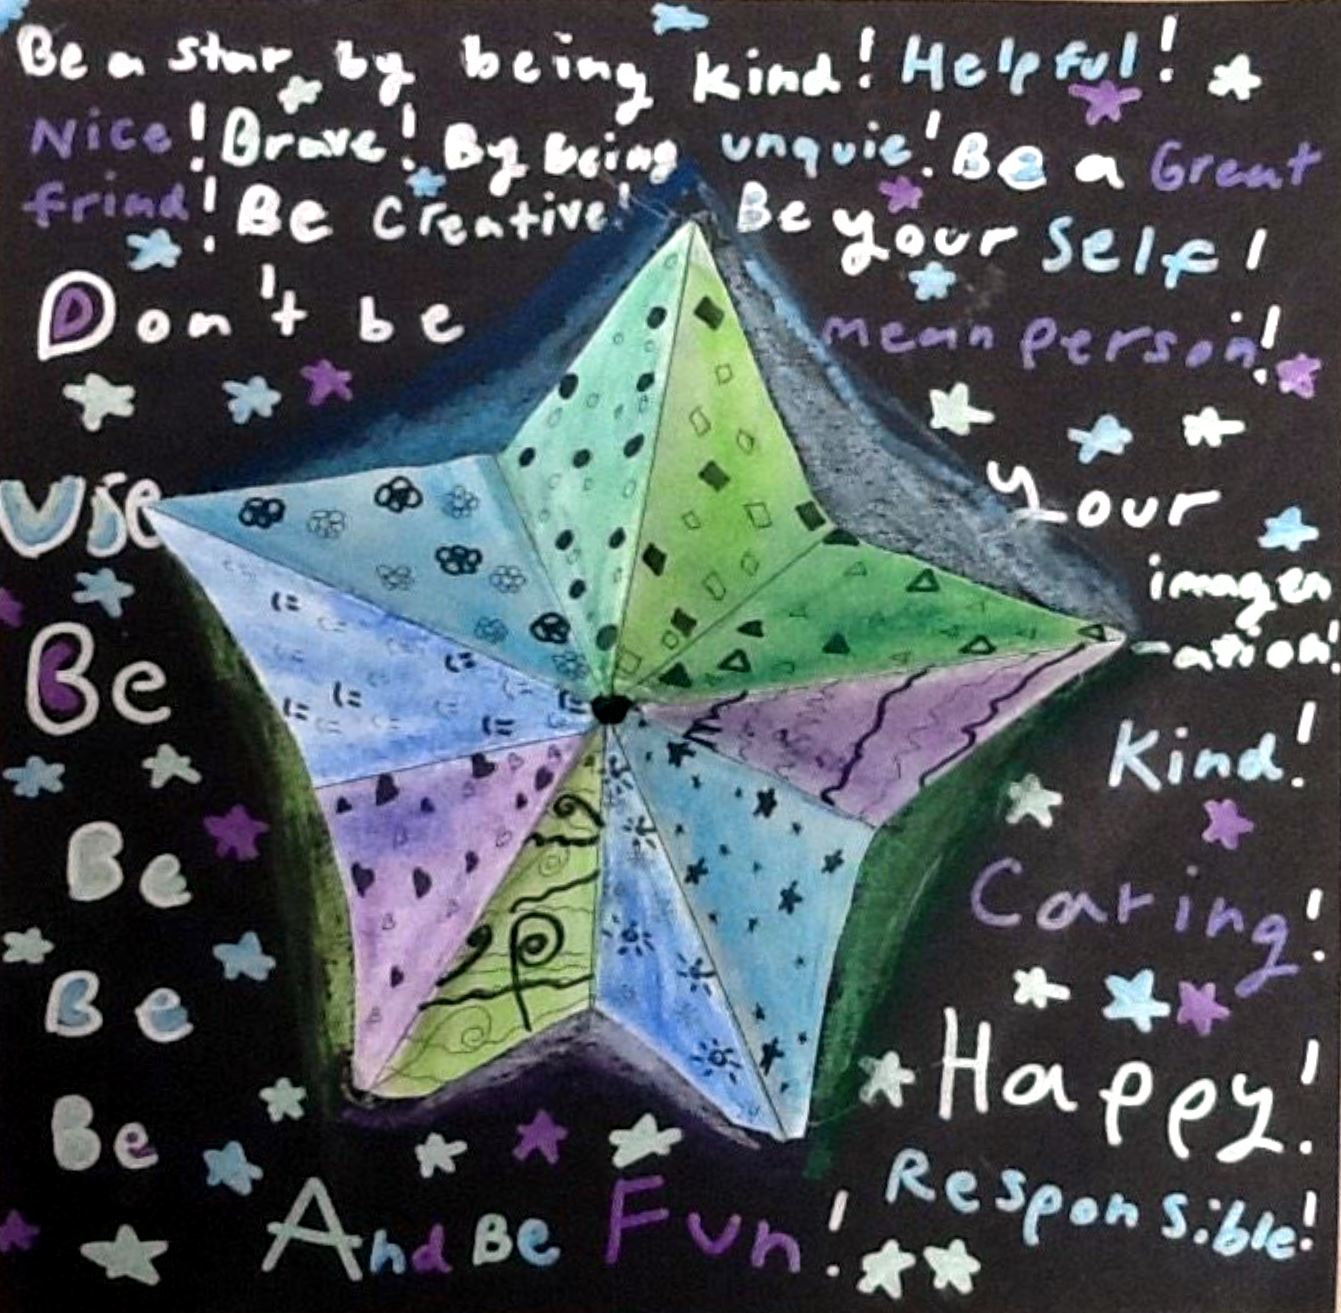 Be a star by being kind! Helpful!
Nice! Brave! By being unquie! Be a Great
frind! Be Creative! Be your self!
Don't be mean person!
Use your
imagen
-ation!
Be Kind!
Be Caring!
Be Happy!
Be Responsible!
And Be Fun!